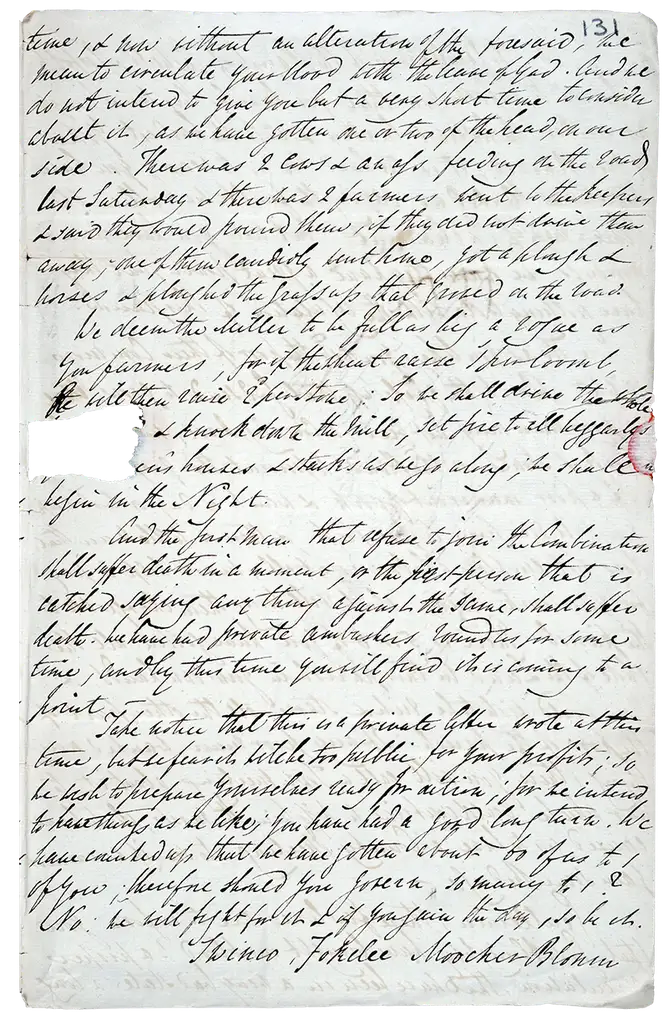 131
time, & now without an alteration of the foresaid, we
mean to circulate your blood with the leave of God. And we
do not intend to give you but a very short time to consider
about it, as we have gotten one or two of the head, on our
side. There was 2 Cows & an ass feeding on the road
last Saturday & there was 2 farmers went to the keepers
& said they would pound them, if they did not drive them
away; one of them candidly went home, got a plough &
horses & ploughed the grass up that growed on the road.
We deem the Miller to be full as big a rogue as
you farmers, for if the wheat raise 1 per Coomb,
he will then raise 2 per stone; So we shall drive the whole
& knock down the Mill, set fire to all beggarly
houses & stacks as we go along; we shall
begin in the Night.
And the first man that refuse to join the Combination
shall suffer death in a moment, or the first person that is
catched saying anything against the same, shall suffer
death. we have had private ambushers round us for some
time, and by this time you will find it is coming to a
point.
Take notice that this is a private letter wrote at this
time, but we fear it will be too public for your profits; so
we wish to prepare yourselves ready for action, for we intend
to have things as we like; you have had a good long turn. We
have counted up that we have gotten about 60 of us to 1
of you; therefore should you govern, so many to 1?
No: we will fight for it & if you gain the day, so be it.